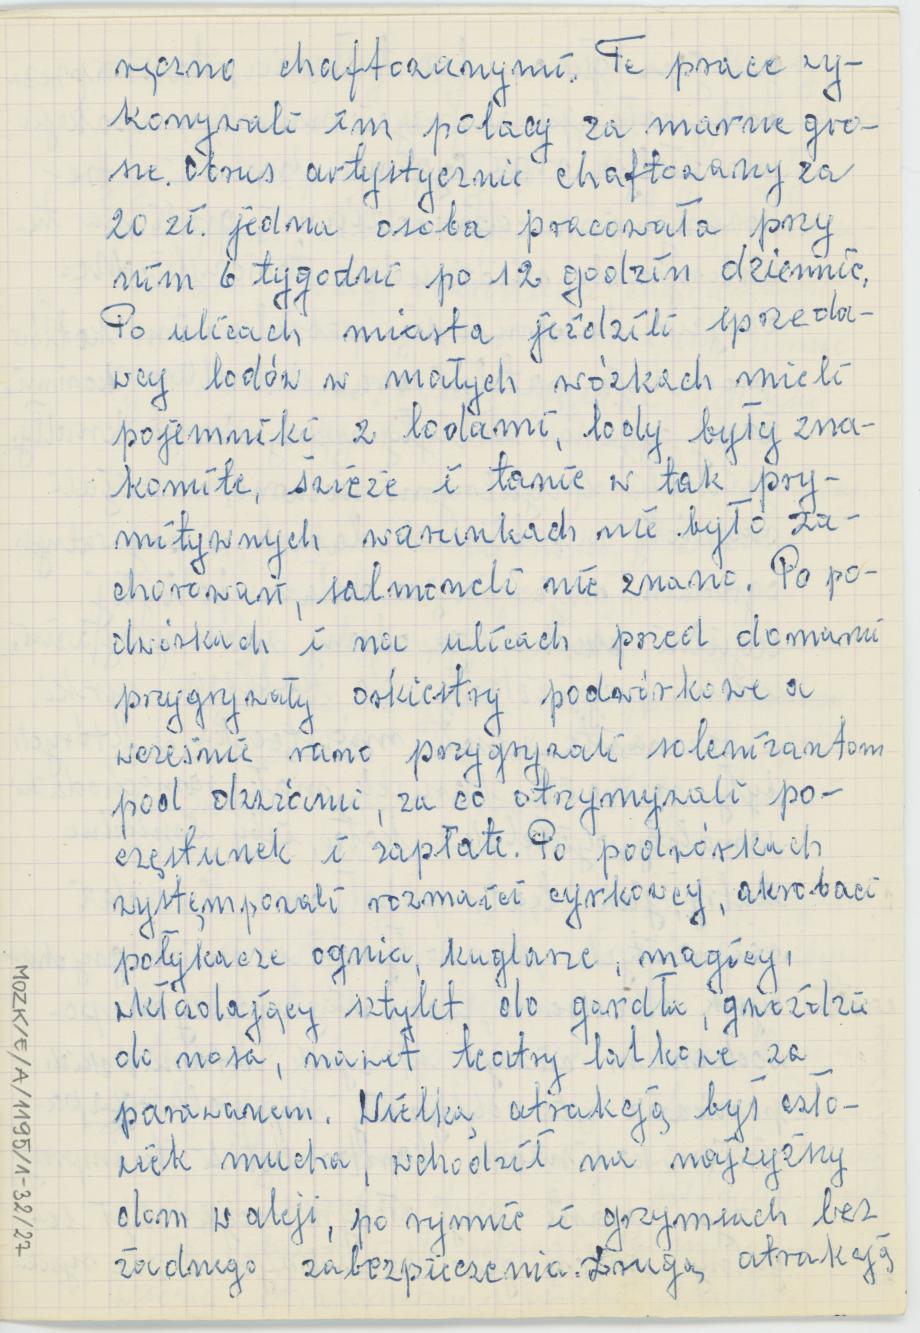 ręczno chaftowanymi. Te prace wy-
konywali im polacy za marne gro-
sze. Obrus artystycznie chaftowany za
20 zł. jedna osoba pracowała przy
nim 6 tygodni po 12 godzin dziennie,
Po ulicach miasta jeździli sprzeda-
wcy lodów w małych wózkach mieli
pojemniki z lodami, lody były zna-
komite, świeże i tanie w tak pry-
mitywnych warunkach nie było za-
chorowań, salmoneli nie znano. Po po-
dwórkach i na ulicach przed domami
przygrywały orkiestry podwórkowe a
wcześnie rano przygrywali solenizantom
pod drzwiami, za co otrzymywali po-
częstunek i zapłate. Po podwórkach
wystęmpowali rozmaici cyrkowcy, akrobaci
połykacze ognia, kuglarze, magicy,
wkładający sztylet do gardła, gwoździe
do nosa, nawet teatry lalkowe za
parawanem. Wielką atrakcją był czło-
wiek mucha, wchodził na najwyżny
dom w aleji, po rynnie i gzymsach bez
żadnego zabezpieczenia. Drugą atrakcją
MOZK/E/A/1195/1-32/27